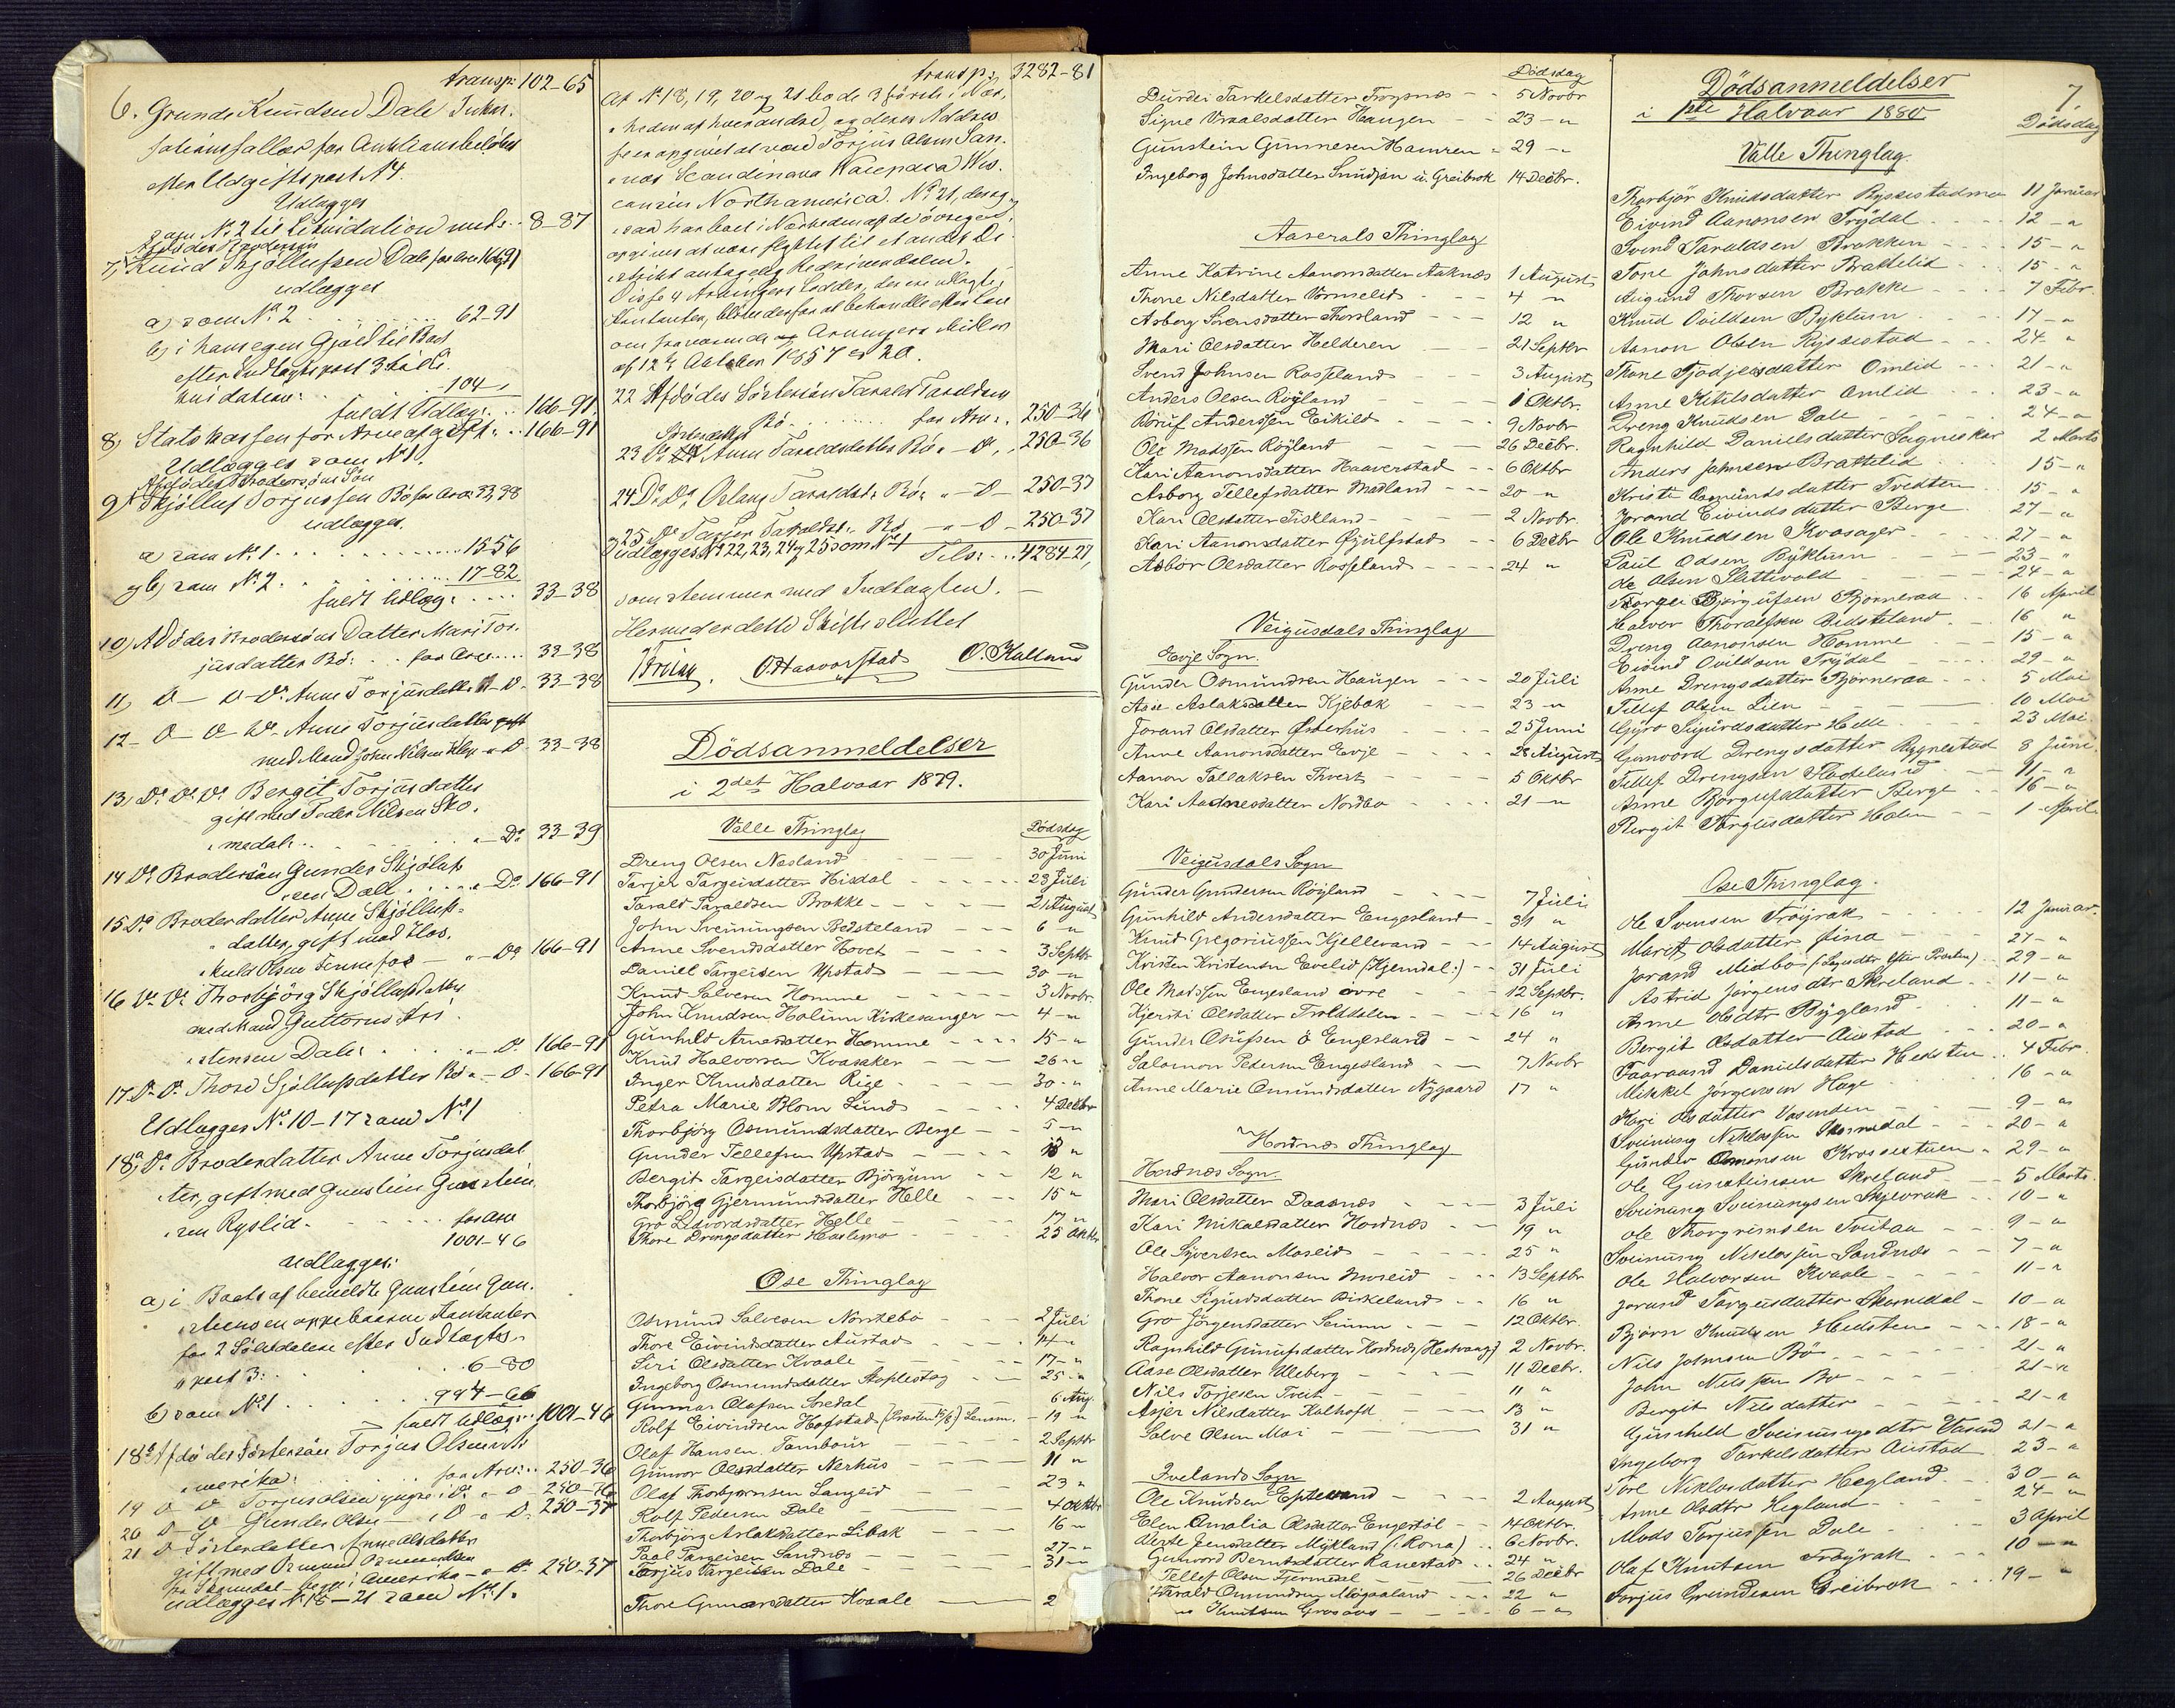 transp: 102-65
6. Grunde Knudsen Dale
efter Udgiftspost N 4.
Udlægges
som No 2 til Liquidation med .. 8-87
7, Knud Skjøllufsen Dale for Arv 166,91
udlægges
a) som No 2 . . . . 62-91
b) i hans egen Gjæld til Boet
104 "
fuldt Udlæg: . . 166-91.
8, Statskassen for Arveafgift: . . 166-91
Udlægges som No 1.
Afdødes Brodersøns Søn
9, Skjølluf Torjussen Bø for Arv 33,38
udlægges.
a) som No 1. . . . 15-56
og b, som No 2. . . . 17-82
fuldt Udlæg: . . . . 33-38
10) Afdødes Brodersøns Datter Mari Tor-
jusdatter Bø: . . for Arv: . . . 33-38
11, D- D- Do. Anne Torjusdatter - D. 33-38
12- D- D- Do. Anne Torjusdatter gift
med Mand John Nilsen - D. 33-38
13, Do. Do. Do. Bergit Torjusdatter
gift med Peder Nilsen Sko-
medal: . . . . - Do 33-39
14 Do Brodersøn Gunder Skjøluf-
sen Dale . . . . Do 166-91
15 Do Broderdatter Anne Skjølluf-
datter, gift med Has-
kuld Olsen Fennefos - " - Do 166-91
16 Do. Do. Thorbjørg Skjøllufsdatter
med Mand Guttorm Kri-
stensen Dale: . . . . Do. 166-91
17 D. D. Thore Sjøllufsdatter Bø " - D - 166-91
Udlægges No. 10-17 som No 1
18a, Do Broderdatter Anne Torjusdat-
ter, gift med Gunstein Gunstein-
sen Ryslid. . . . for Arv
1001-46
udlægges:
a) i Boets af bemeldte Gunstein Gun-
steinsen oppebaarne Kontanter
for 2 Sølvdalere efter Indtægts-
post 3: . . . . 6-80
b) som No 1 . . . . 994-66
fuldt Udlæg: . . 1001-46
18b, Afdødes Søstersøn Torjus Olsen i A-
merika: . . . . for Arv: . . 250-36
19 D- D- Torjus Olsen yngre i Do. " - D 250-36
20 D- D- Gunder Olsen - i D - " D. 250-37
21 D- Søsterdatter Anne Olsdatter
gift med Osmund Osmundsen
Skomedal - begge i Amerika - " - D. 250-37
udlægges No 18-21 som No 1.
transp: 3282-81
Af No 18, 19, 20 og 21 bo de 3 første i Nær-
heden af hverandre og deres Addres-
se er opgivet at være Torjus Olsen San-
nes Scandinava Waupaca Wis-
consin Northamerica. No 21, derog-
saa har boet i Nærheden af de øvrige,
opgives at være flyttet til et andet Di-
strikt antagelig Redriverdalen.
Disse 4 Arvingers Lodder, der ere udlagte i
Kontanter, blive derfor at behandle efter Lov
om fraværende Arvingers Midler
af 12te Oktober 1857 § 20.
22 Afdødes Søstersøn Tarald Taraldsen
Bø . . . . for Arv: . 250-36
Søsterdatter
23 Do Anne Taraldsdatter Bø: - D. . 250-36
24 Do. Do. Aslaug Taraldsdt. Bø: " - D - 250-37
25 Do Tarjer Taraldsd.. Bø - " - D - 250-37
udlægges No 22, 23, 24 og 25 som No 1 Tils: . . 4284-27,
som stemmer med Indtægten. -
Hermed er dette Skifte sluttet
O. Haaverstad O. Kalland
Dödsanmeldelser
i 2det Halvaar 1879.
Valle Thinglag Dödsdag
Dreng Olsen Nesland 30 Juni
Tarjer Targeisdatter Hisdal 23 Juli
Tarald Taraldsen Brokke 21 August
John Sveinungsen Bedsteland 6 -"
Anne Svendsdatter Hovet 3 Septbr
Daniel Targeisen Upstad 30 -"
Knud Salvesen Homme 3 Novbr.
John Knudsen Holum Kirkesanger 4 -"
Gunhild Arnesdatter Homme 15 -"
Knud Halvorsen Kvasaker 26 -"
Inger Knudsdatter Rige 30 -"
Petra Marie Blom Lund 4 Decbr
Thorbjörg Osmundsdatter Berge 5 -"
Gunder Tellefsen Upstad 13 "
Bergit Targeisdatter Björgum 12 "
Thorbjörg Gjermundsdatter Helle 15 "
Gro Sigvordsdatter Helle 17 "
Thore Drengsdatter Haslemo 25 Oktbr
Ose Thinglag
Osmund Salvesen Norstebø 2 Juli
Thore Eivindsdatter Austad 14 "
Siri Olsdatter Kvaale 17 -"
Ingeborg Osmundsdatter 25 -"
Gunnar Olafsen Aasedal 6 Aug.
Rolf Eivindsen Hofstad Lensm. 19 "
Olaf Hansen Tambour 2 Septbr
Gunvor Olsdatter Nerhus 11 "
Olaf Thorbjørnsen Langeid 23 "
Rolf Pedersen Dale 4 Oktbr
Thorbjörg Aslaksdatter Libak 16 "
Paal Targeisen Sandnes 27 -"
Torjus Targeisen Dale 31 -"
Thore Gunnarsdatter Kvaale 2
Dødsdag
Durdei Tarkelsdatter 5 Novbr
Signe Vraalsdatter Haugen 23 - "
Gunstein Gunnesen Hamren 29 - "
Ingeborg Johnsdatter u. Greibrok 14 Decbr.
Aaserals Thinglag
Anne Katrine Aanonsdatter Aaknes 1 August
Thore Nilsdatter Vormelid 4 "
Asborg Sorensdatter Thorsland 12 "
Mari Olsdatter Helderen 21 Septbr
Svend Johnsen Rosseland 3 August
Anders Olsen Røyland 1 Oktbr.
Roruf Anderssen Eikild 9 Novbr
Ole Madssen Røyland 26 Decbr.
Kari Aanonsdatter Haaverstad 6 Oktbr
Asborg Tellefsdatter Madland 20 -"
Kari Olsdatter Fiskland 2 Novbr.
Kari Aanonsdatter Øyulfstad 6 Decbr
Asbor Olsdatter Rosseland 24 "
Veigusdals Thinglag
Evje Sogn.
Gunder Osmundsen Haugen 20 Juli
Aase Aslaksdatter Kjebak 23 -"
Jorand Olsdatter Østerhus 25 Juni
Anne Aanonsdatter Evje 28 August
Aanon Tallaksen Tveit 5 Oktbr
Kari Aadnesdatter Nordbø 21 -"
Veigusdals Sogn
Gunder Gundersen Röyland 7 Juli
Gunhild Andersdatter Engesland 31 "
Knud Gregoriussen Kjellevand 14 August
Kristen Kristensen Evelid (Kjerndal:) 31 Juli
Ole Madssen Engesland øvre 12 Septbr.
Kjersti Olsdatter Trolddalen 16 "
Gunder Osufsen ö Engesland 24 "
Salomon Pedersen Engesland 7 Novbr
Anne Marie Omundsdatter Nygaard 17 "
Hordnæs Thinglag
Hordnæs Sogn.
Mari Olsdatter Daasnes 3 Juli
Kari Mikalsdatter Hordnæs 19 "
Ole Syvertsen Moseid 25 "
Halvor Aanonsen Moseid 13 Septbr
Thone Sigurdsdatter Birkeland 16 "
Gro Jörgensdatter Senum 12 Oktbr.
Ragnhild Gunufsdatter Hordnæs 2 Novbr.
Aase Olsdatter Uleberg 11 Decbr.
Nils Torjesen Tveit 11 "
Asjer Nilsdatter Kalhoft 13 "
Salve Olsen Moi 31 "
Ivelands Sogn
Ole Knudsen Eptevand 2 August
Elen Amalia Olsdatter Engestöl 14 Oktbr.
Jensdatter Mykland (:Rona) 6 Novbr.
Gunvord Berntsdatter Ranestad 24 "
Tellef Olsen Fjermedal 26 Decbr
Tarald Omundsen 22 "
Knutsen Grosaas 6 -"
7,
Dödsanmeldelser
i 1ste Halvaar 1880.
Dödsdag
Valle Thinglag.
Thorbjör Knudsdatter Rysstadmo 11 Januar
Eivind Aanonsen Trydal 12 -"
Svend Taraldsen Brokken 15 -"
Tore Johnsdatter Brattelid 15 -"
Augund Thorsen Brokke 7 Febr.
Knud Ovildsen Byklum 17 -"
Aanon Olsen Rysstad 24 -"
Thone Tjodjelsdatter Omlid 21 -"
Anne Ketilsdatter Omlid 23 -"
Dreng Knudsen Dale 24 -"
Ragnhild Danielsdatter Sagneskar 2 Marts
Anders Johnsen Brattelid 15 -"
Kristi Osmundsdatter Tvedten 15 -"
Jorand Eivindsdatter Berge 27 -"
Ole Knudsen Kvasager 27 -"
Paul Odsen Byklum 23 -"
Ole Olsen Slettevold 24 -"
Torgei Björgufsen Bjørneraa 16 April
Halvor Thoralfsen Bedsteland 16 "
Dreng Aanonsen Homme 15 -"
Eivind Ovildsen Trydal 29 -"
Anne Drengsdatter Bjørneraa 5 Mai
Tellef Olsen Lien 10 Mai
Gyro Sigurdsdatter Helle 23 Mai
Gunvord Drengsdatter Rygnestad 8 Juni
Tellef Drengsen Flatelund 11 -"
Anne Borgufsdatter Berge 16 -"
Bergit Torgusdatter Holen 1 April
Ose Thinglag.
Ole Svensen Frøyrak 12 Januar.
Marit Olsdatter Jina 27 -"
Jorand Midbø 29 -"
Astrid Jørgensdtr Skreland 11 -"
Anne Olsdtr Bygland 11 -"
Bergit Olsdatter Austad 20 -"
Taaraand Danielsdatter Hedsten 4 Febr.
Mikkel Jørgensen Hage 16 -"
Kari Olsdatter Vasenden 9 -"
Sveinung Niklossen Skomedal 20 -"
Gunder Omonsen Krossestuen 29 -"
Ole Gunsteinsen Skreland 5 Marts.
Sveinung Sveinungsen Skjevrak 10 -"
Ole Thorgrimsen Tveitaa 9 -"
Sveinung Niklossen Sandnes 7 -"
Ole Halvorsen Kvaale 11 -"
Jorand Torgusdatter Skomedal 10 -"
Bjørn Knudsen Hedsten 18 -"
Nils Johnsen Bö 21 -"
John Nilssen Bö 21 -"
Bergit Nilsdatter 21 -"
Gunhild Sveinungsdtr Vasend 21 -"
Ingeborg Tarkelsdatter Austad 23 -"
Tore Niklosdatter Hegland 30 -"
Anne Olsdtr Hegland 24 -"
Mads Torjussen Dale 3 April
Olaf Knutsen Frøyrak 10 -"
Torjus Grundesen Greibrok 19 -"